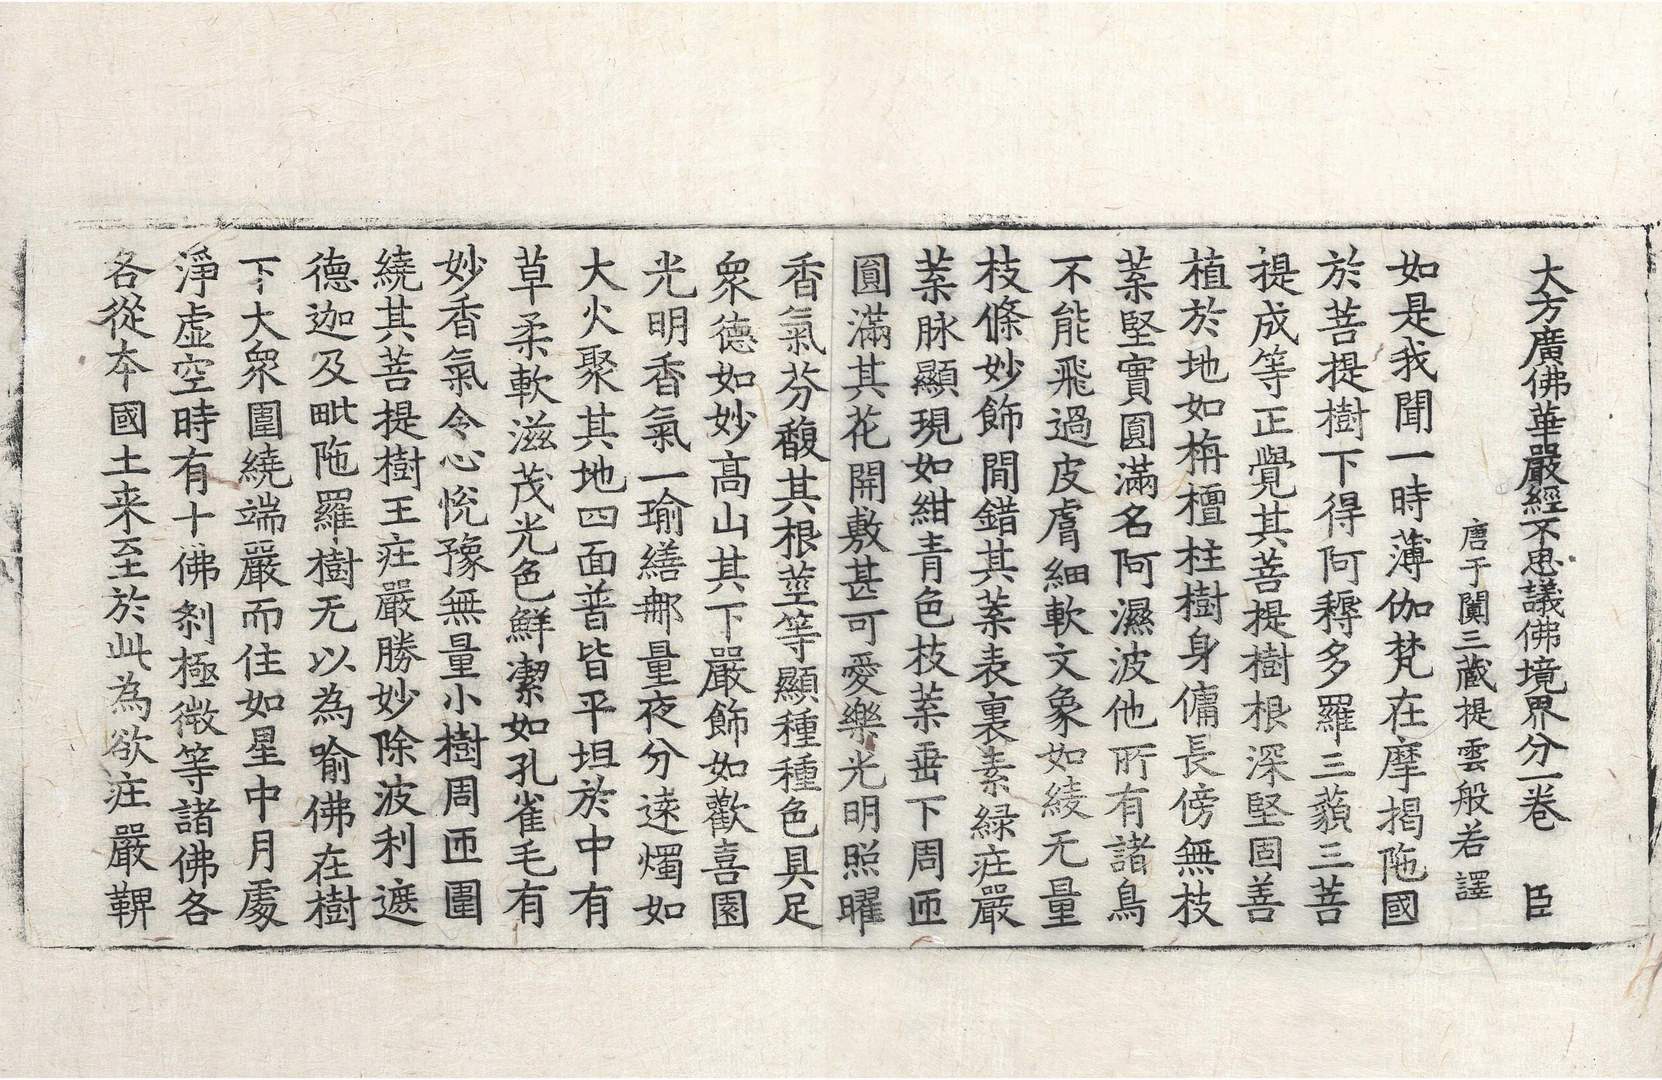 大方廣佛華嚴經不思議佛境界分一卷 臣
唐于闐三藏提雲般若譯
如是我聞一時薄伽梵在摩揭陁國
於菩提樹下得阿耨多羅三藐三菩
提成等正覺其菩提樹根深堅固善
植於地如栴檀柱樹身傭長傍無枝
葉堅實圓滿名阿濕波他所有諸鳥
不能飛過皮膚細軟文象如綾无量
枝條妙飾間錯其葉表裏素緑庄嚴
葉脉顯現如紺青色枝葉垂下周匝
圓滿其花開敷甚可愛樂光明照曜
香氣芬馥其根莖等顯種種色具足
衆德如妙高山其下嚴飾如歡喜園
光明香氣一瑜繕那量夜分遠燭如
大火聚其地四面普皆平坦於中有
草柔軟滋茂光色鮮潔如孔雀毛有
妙香氣令心悅豫無量小樹周匝圍
繞其菩提樹王庄嚴勝妙除波利遮
德迦及毗陁羅樹无以為喻佛在樹
下大衆圍繞端嚴而住如星中月處
淨虛空時有十佛剎極微等諸佛各
各從本國土来至於此為欲庄嚴鞞